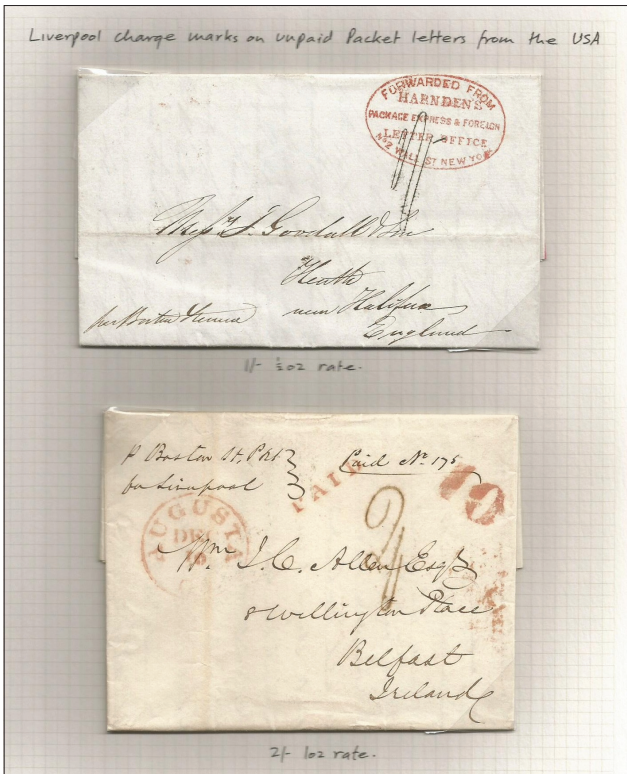 Liverpool charge marks on unpaid Packet letters from the USA
FORWARDED FROM
HARNDEN'S
PACKAGE EXPRESS & FOREIGN
LETTER OFFICE
No 2 WALL ST NEW YORK
Messrs J. Goodall & Son
Heath
near Halifax
England
per Boston Steamer
1/- ½oz rate.
P Boston St. Pckt
for Liverpool
Paid No. 175
PAID
70
AUGUSTA
DEC
2/
Wm J. C. Allen Esqr
8 Wellington Place
Belfast
Ireland
2/- 1oz rate.